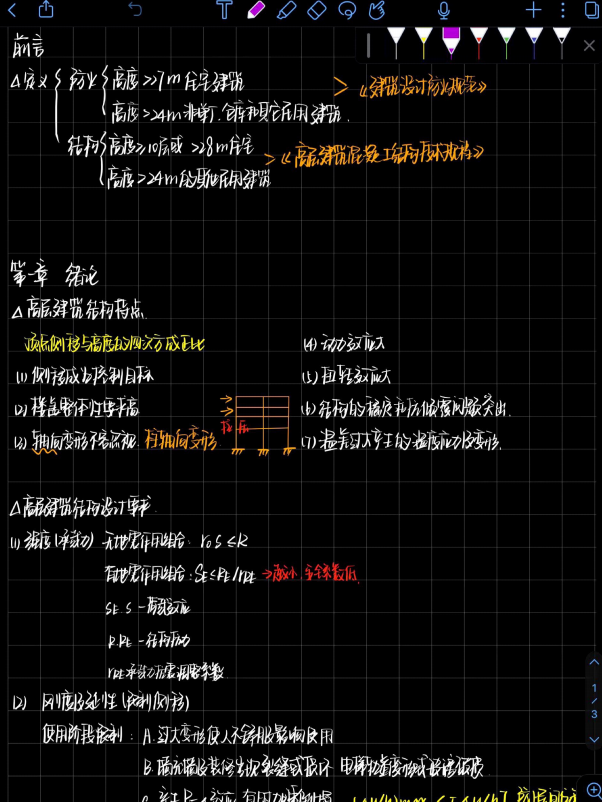 前言
△定义 防火 高度>27m住宅建筑
高度>24m非单厂、仓库和其它民用建筑.
> 《建筑设计防火规范》
结构 高度≥10层或>28m住宅
高度>24m的其他民用建筑
> 《高层建筑混凝土结构技术规程》
第一章 绪论
△高层建筑结构特点.
顶点侧移与高度的四次方成正比
(1) 侧移成为控制目标
(2) 楼盖整体性要求高
(3) 轴向变形不容忽视. 柱轴向变形
(4) 动力效应大
(5) 扭转效应大
(6) 结构的稳定和抗倾覆问题突出.
(7) 温差过大产生的温度应力及变形.
△高层建筑结构设计要求
(1) 强度(承载力) 无地震作用组合: r₀S≤R
有地震作用组合: SE≤RE/rRE →减小 安全系数低
SE.S - 荷载效应
R.RE - 结构抗力
rRE承载力抗震调整系数
(2) 刚度及延性(限制侧移)
使用阶段限制: A. 过大变形使人不舒服影响使用
B. 填充墙及装修出现裂缝或损坏 电梯轨道变形
1
3